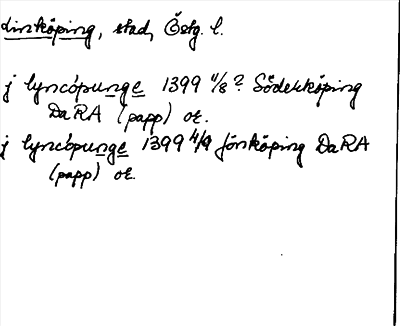 Linköping, stad, Östg. l.
j lyncópunge 1399 11/8? Söderköping
DaRA (papp) or.
j lyncópunge 1399 4/9 Jönköping DaRA
(papp) or.